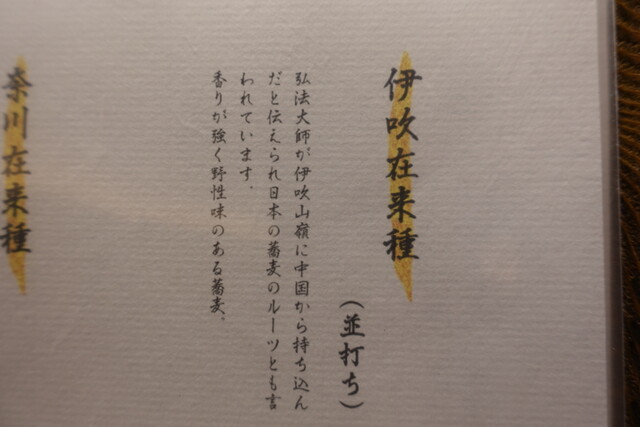 伊吹在来種
(並打ち)
弘法大師が伊吹山嶺に中国から持ち込ん
だと伝えられ日本の蕎麦のルーツとも言
われています。
香りが強く野性味のある蕎麦。
奈川在来種